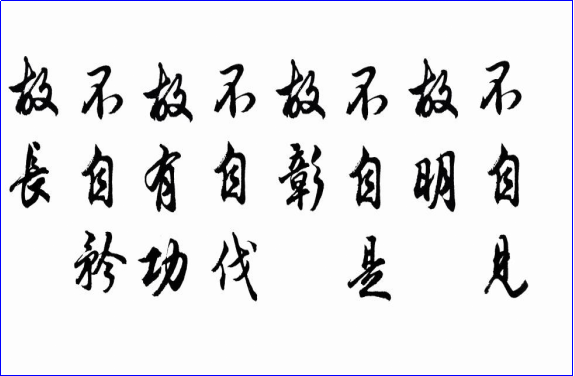 不自見
故明
不自是
故彰
不自伐
故有功
不自矜
故長